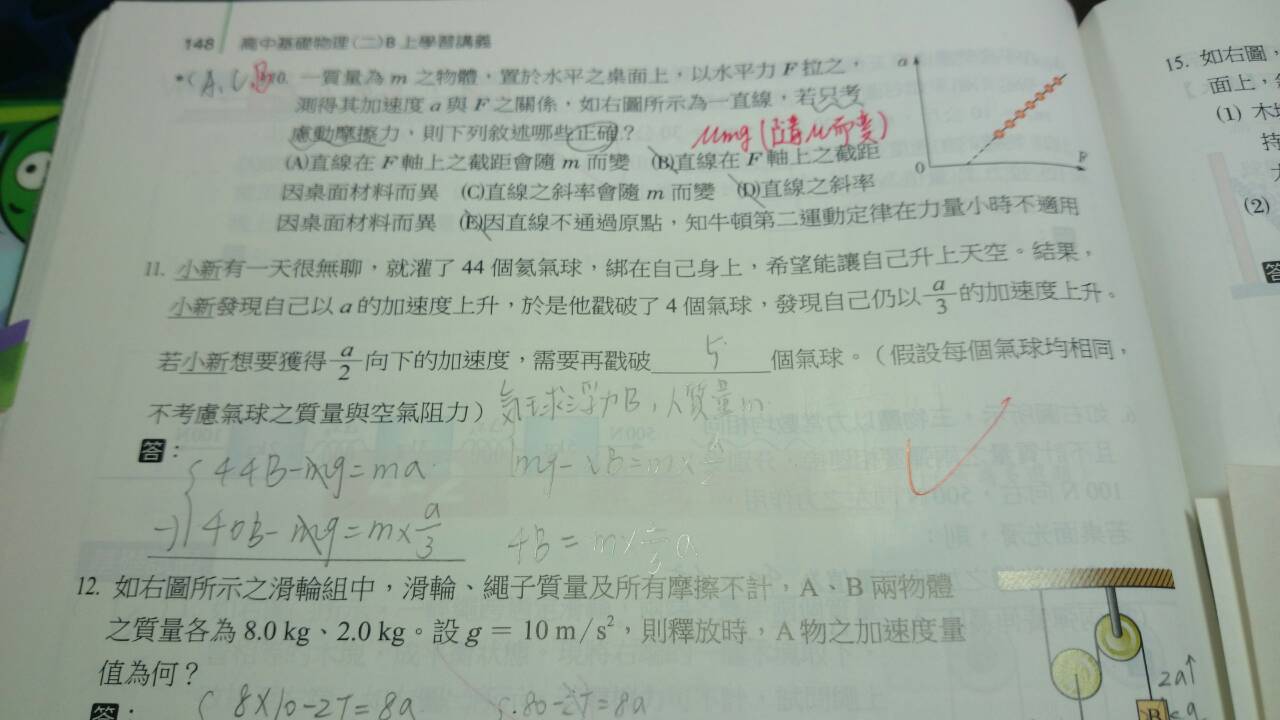 148 高中基礎物理(二)B上學習講義
*(A、C、B 10. 一質量為 m 之物體,置於水平之桌面上,以水平力 F 拉之,
測得其加速度 a 與 F 之關係,如右圖所示為一直線,若只考
慮動摩擦力,則下列敘述哪些正確?
μmg (隨μ而變)
(A)直線在 F 軸上之截距會隨 m 而變 (B)直線在 F 軸上之截距
因桌面材料而異 (C)直線之斜率會隨 m 而變 (D)直線之斜率
因桌面材料而異 (E)因直線不通過原點,知牛頓第二運動定律在力量小時不適用
a
0
F
11. 小新有一天很無聊,就灌了 44 個氦氣球,綁在自己身上,希望能讓自己升上天空。結果,
小新發現自己以 a 的加速度上升,於是他戳破了 4 個氣球,發現自己仍以 a/3 的加速度上升。
若小新想要獲得 a/2 向下的加速度,需要再戳破 5 個氣球。(假設每個氣球均相同,
不考慮氣球之質量與空氣阻力) 氣球浮力B,人質量m
答:
44B-mg=ma
-) 40B-mg=m×a/3
4B=m×2/3a
12. 如右圖所示之滑輪組中,滑輪、繩子質量及所有摩擦不計,A、B 兩物體
之質量各為 8.0 kg、2.0 kg。設 g = 10 m/s²,則釋放時,A 物之加速度量
值為何?
答:
8×10-2T=8a
80-2T=8a
2a↑
B
15. 如右圖,
面上,
(1) 木
持
(2)
答